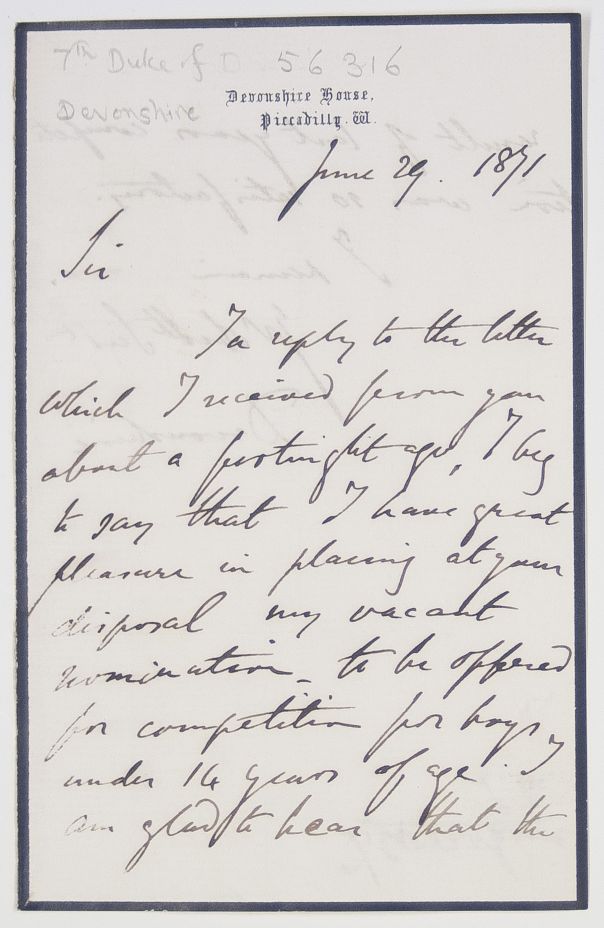 7th Duke of D 56 316
Devonshire
Devonshire House,
Piccadilly. W.
June 29. 1871
Sir
In reply to the letter
which I received from you
about a fortnight ago, I beg
to say that I have great
pleasure in placing at your
disposal my vacant
nomination - to be offered
for competition for boys
under 14 years of age. I
am glad to hear that the